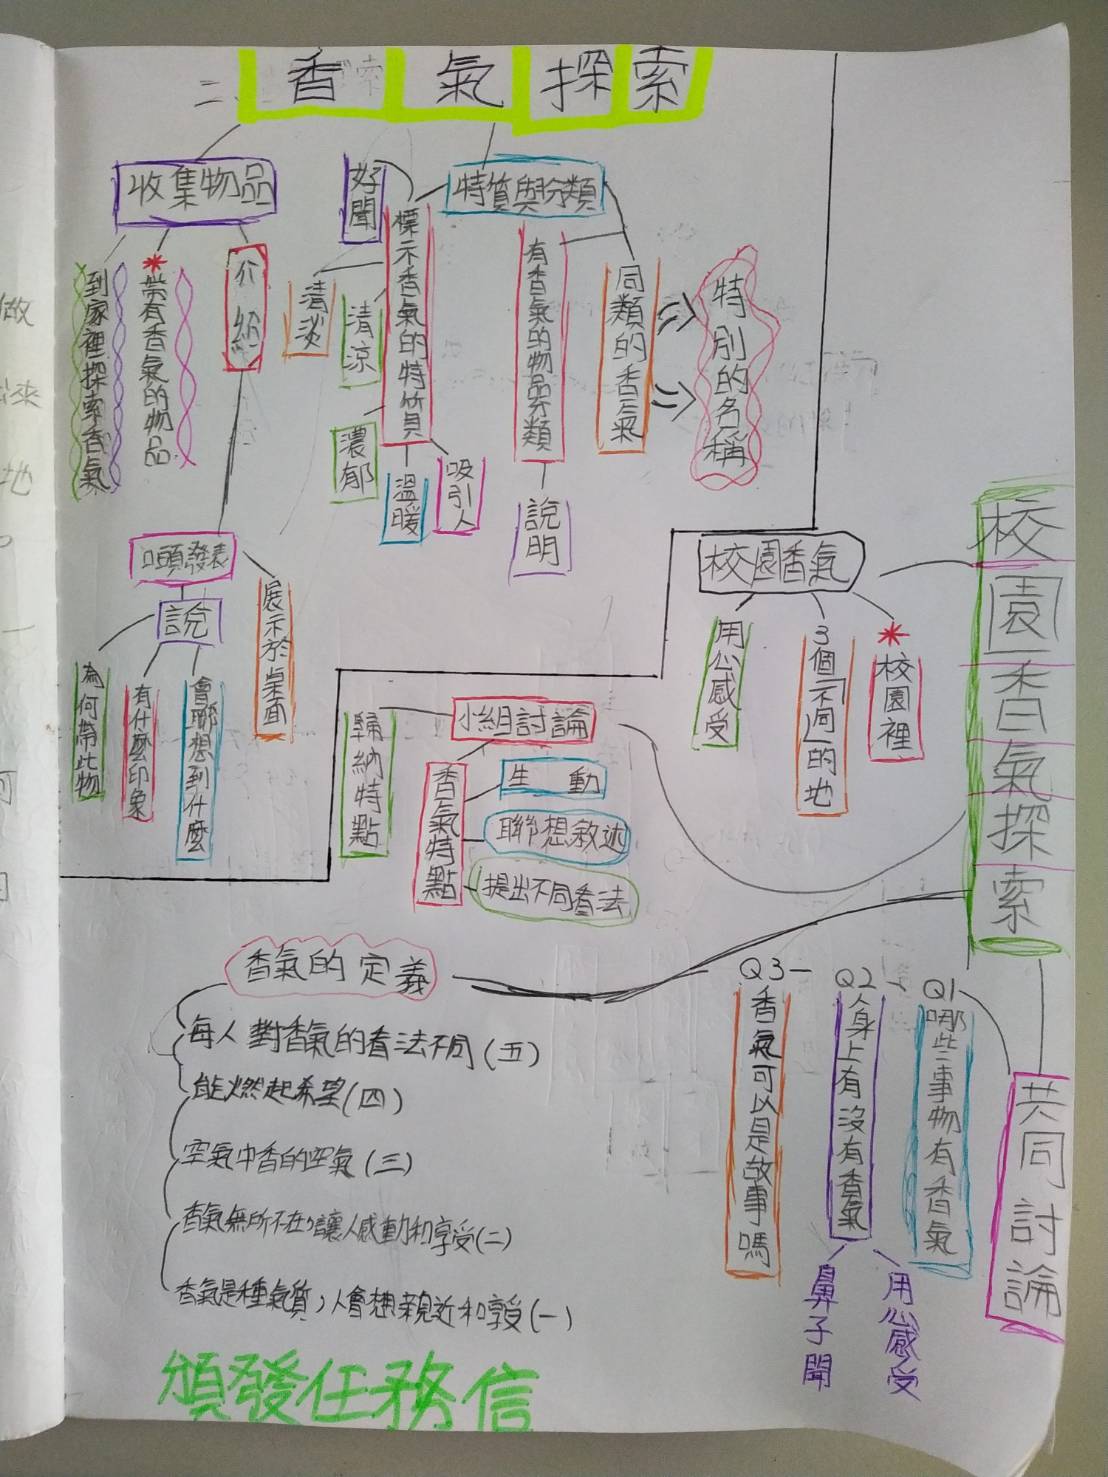 二、
香氣探索
收集物品
到家裡探索香氣
*帶有香氣的物品
介紹
口頭發表
說
為何帶此物
有什麼印象
會聯想到什麼
展示於桌面
特質與分類
標示香氣的特質
好聞
清淡
清凉
濃郁
溫暖
吸引人
有香氣的物品分類
說明
同類的香氣
特別的名稱
校園香氣探索
校園香氣
用心感受
3個不同的地
*校園裡
小組討論
歸納特點
香氣特點
生動
聯想敘述
提出不同看法
香氣的定義
每人對香氣的看法不同(五)
能燃起希望(四)
空氣中香的空氣(三)
香氣無所不在,讓人感動和享受(二)
香氣是種氣質,人會想親近和享受(一)
共同討論
Q1
哪些事物有香氣
Q2
人身上有沒有香氣
用心感受
鼻子聞
Q3
香氣可以是故事嗎
頒發任務信
做
來
地